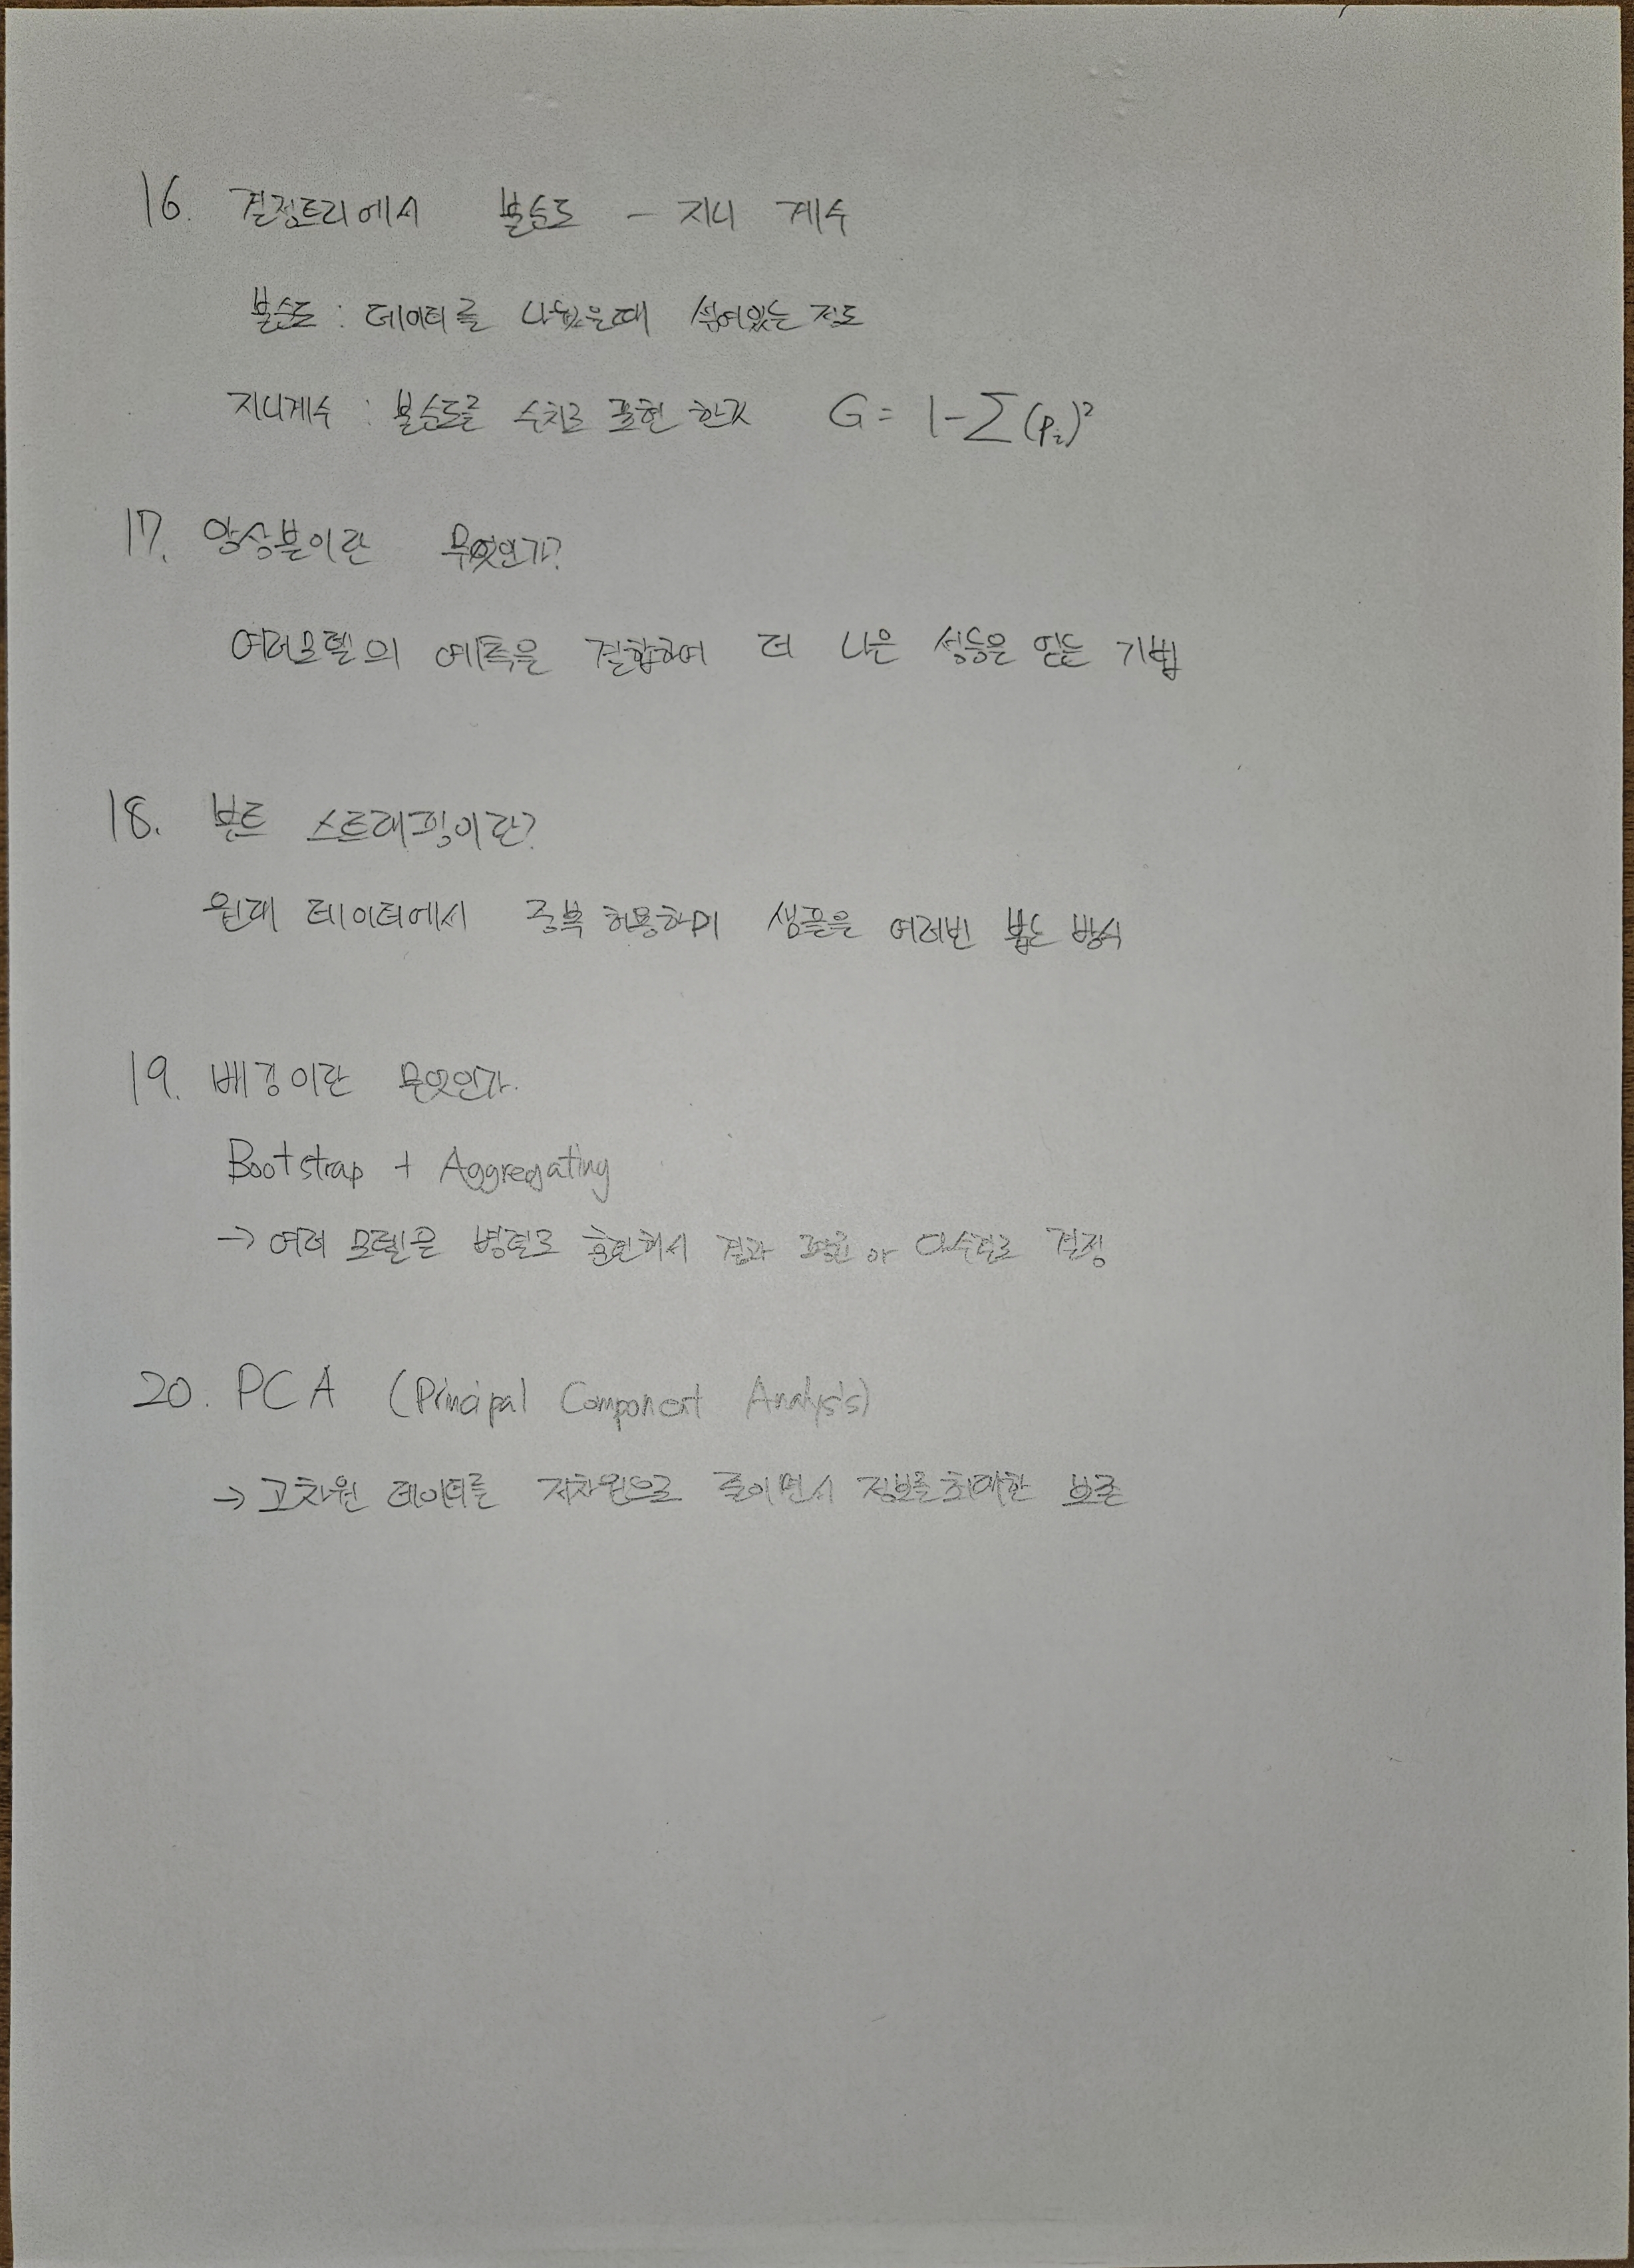 16. 결정트리에서 불순도 - 지니 계수
불순도 : 데이터를 나눴을때 섞여있는 정도
지니계수 : 불순도를 수치로 표현 한것 G = 1-∑(pi)²
17. 앙상블이란 무엇인가?
여러모델의 예측을 결합하여 더 나은 성능을 얻는 기법
18. 부트 스트래핑이란?
원래 데이터에서 중복 허용하며 샘플을 여러번 뽑는 방식
19. 배깅이란 무엇인가.
Bootstrap + Aggregating
→ 여러 모델을 병렬로 훈련해서 결과 평균 or 다수결로 결정
20. PCA (Principal Component Analysis)
→ 고차원 데이터를 저차원으로 줄이면서 정보를 최대한 보존